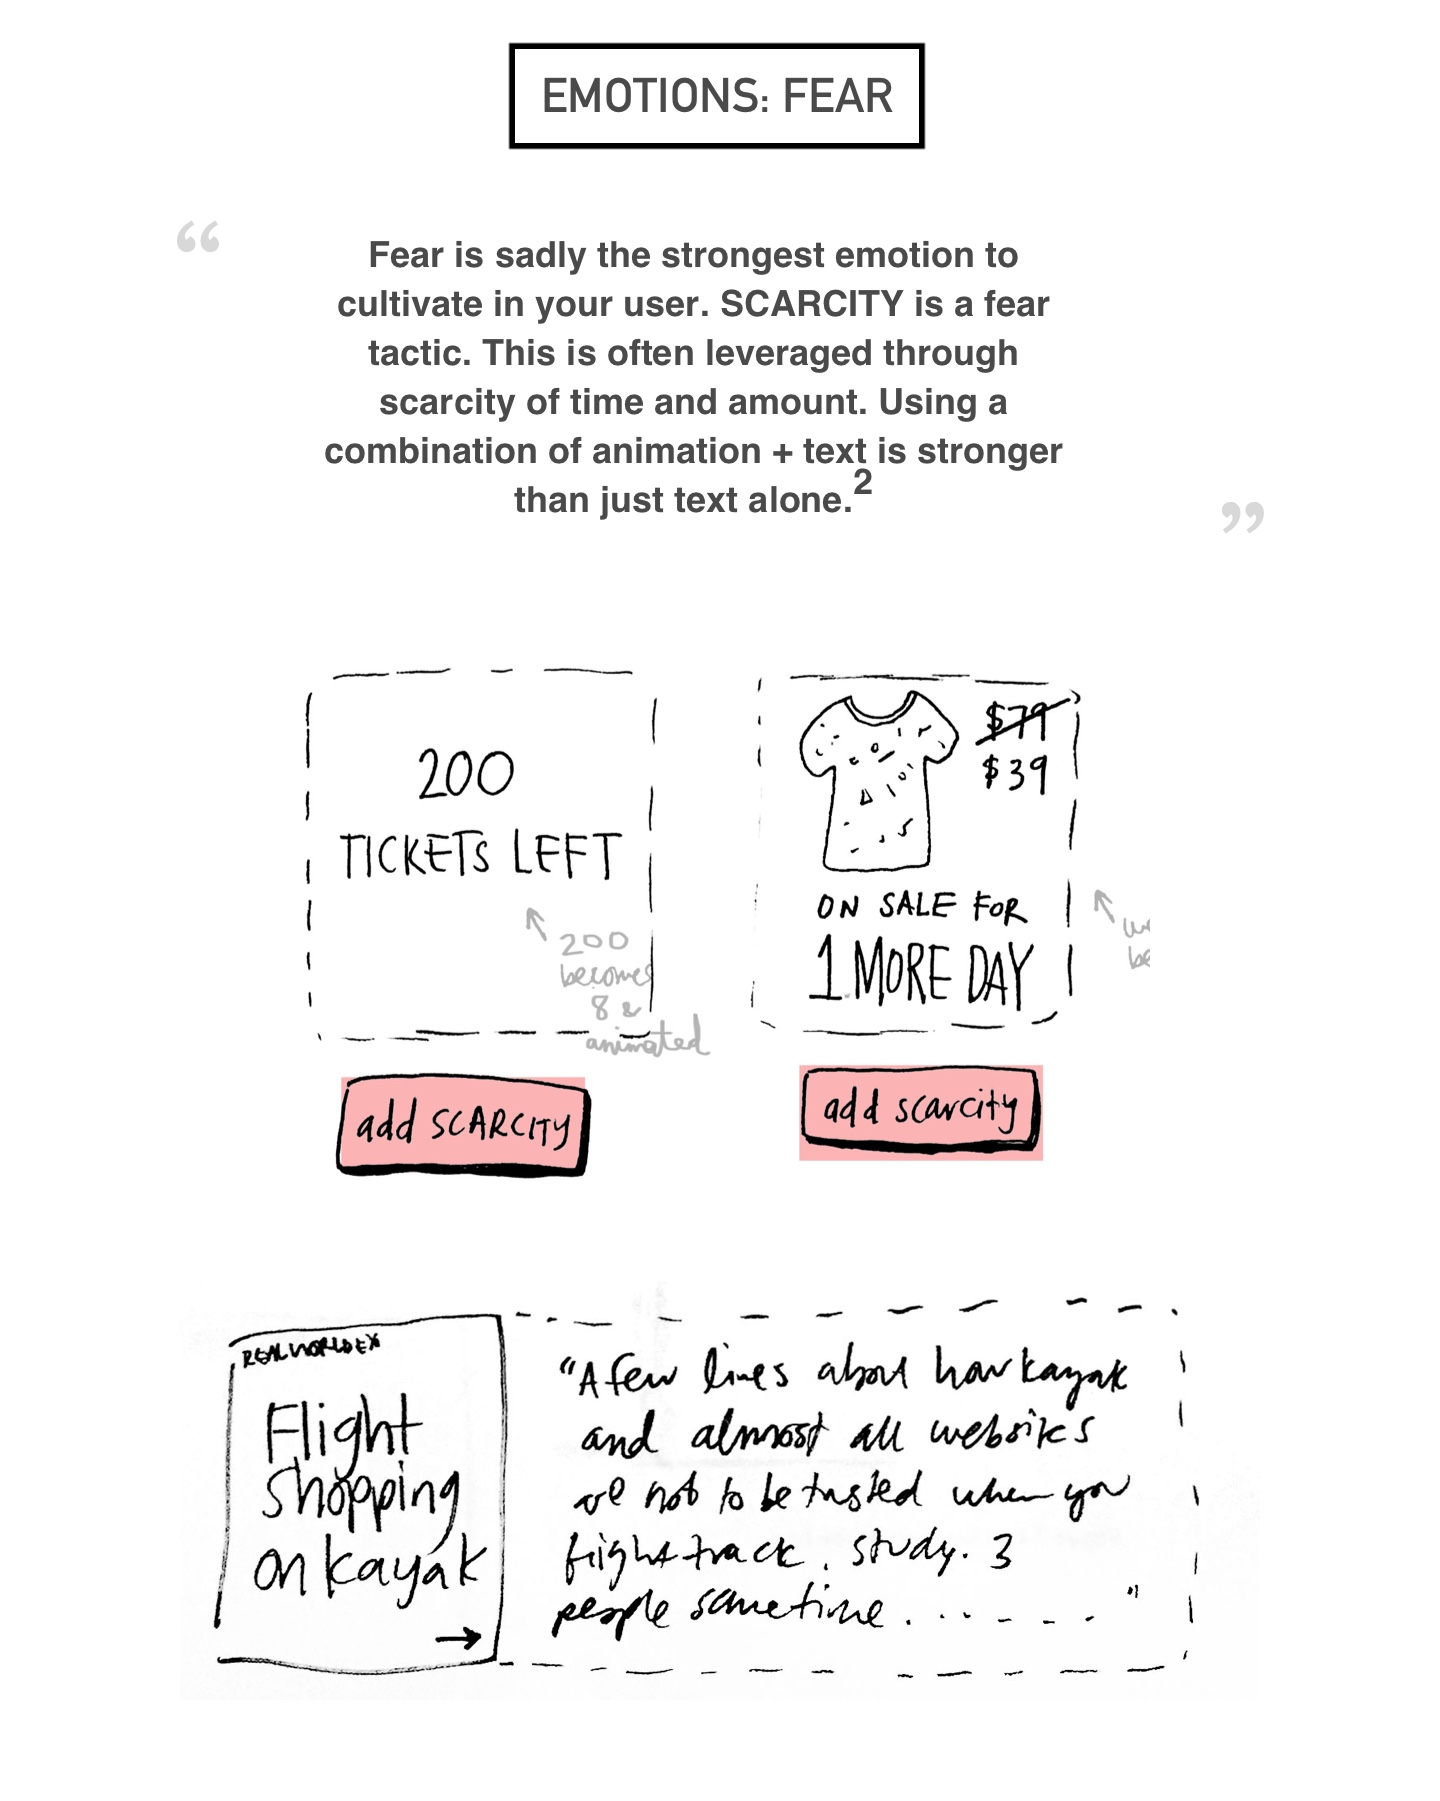 EMOTIONS: FEAR
“
Fear is sadly the strongest emotion to
cultivate in your user. SCARCITY is a fear
tactic. This is often leveraged through
scarcity of time and amount. Using a
combination of animation + text is stronger
than just text alone.2
”
200
TICKETS LEFT
200
becomes
8 &
animated
add SCARCITY
$79
$39
ON SALE FOR
1 MORE DAY
be
add scarcity
REAL WORLD EX
Flight
shopping
on kayak
→
"A few lines about how kayak
and almost all websites
are not to be trusted when you
flight track. study. 3
people sametime . . . - - - "